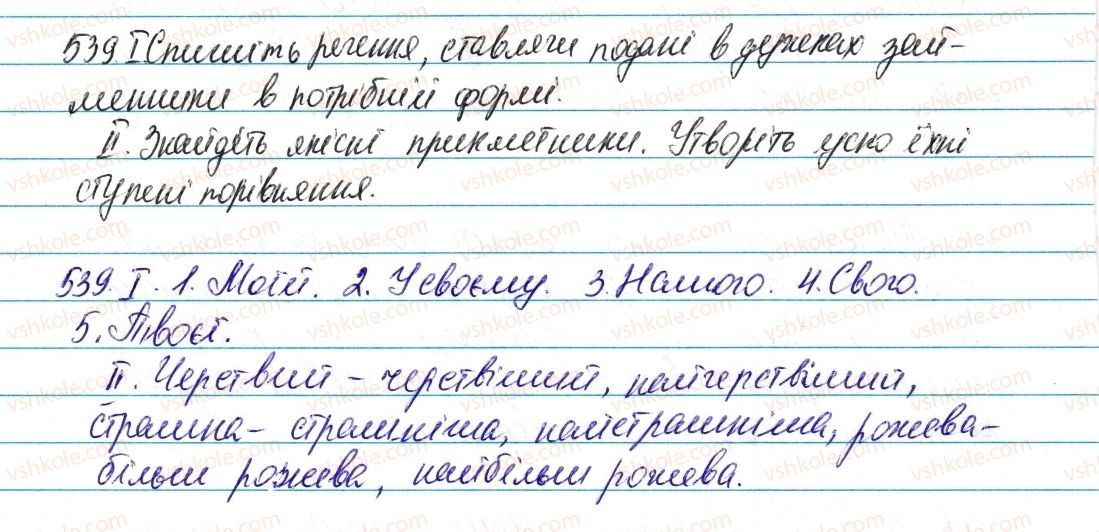 539 I Спишіть речення, ставлячи подані в дужках зай-
менники в потрібній формі.
II. Знайдіть якісні прикметники. Утворіть усно їхні
ступені порівняння.
539. I. 1. Моїй. 2. У своєму. 3. Нашого. 4. Свого.
5. Твоєї.
II. Черствий – черствіший, найчерствіший,
страшна – страшніша, найстрашніша, рожева –
більш рожева, найбільш рожева.